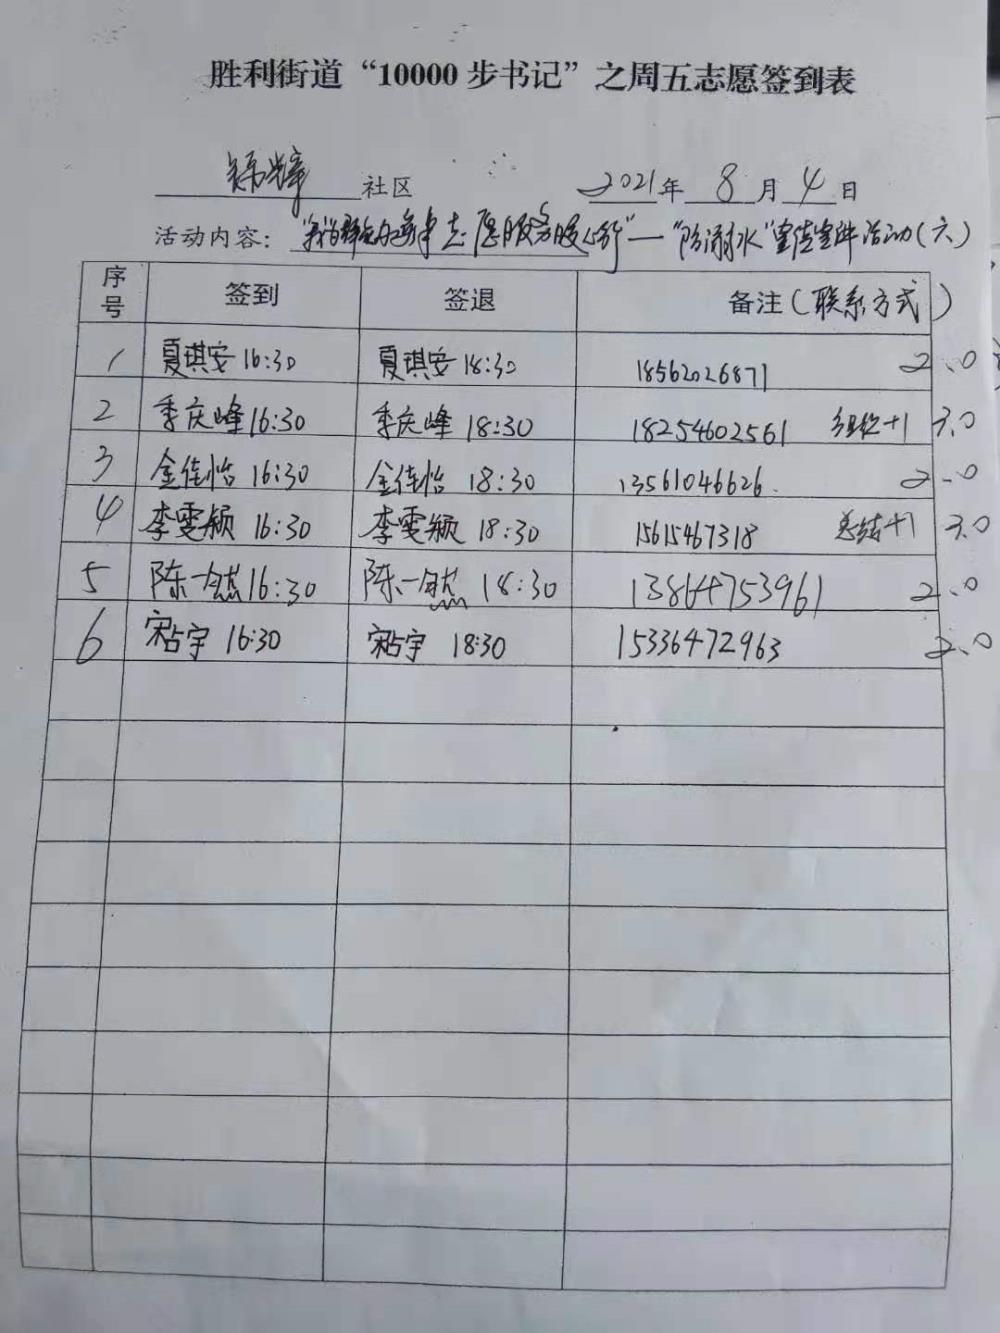 胜利街道“10000步书记”之周五志愿签到表
社区 2021年 8月4日
活动内容： 志愿服务暖心行”—“防溺水”宣传宣讲活动(六)
序号 签到 签退 备注(联系方式)
1 夏琪安 16:30 夏琪安 18:30 18562026871 2.0
2 季庆峰 16:30 季庆峰 18:30 18254602561 组织+1 3.0
3 金佳怡 16:30 金佳怡 18:30 13561046626. 2.0
4 李雯颖 16:30 李雯颖 18:30 15615467318 总结+1 3.0
5 陈一然 16:30 陈一然 18:30 13864753961 2.0
6 宋占宇 16:30 宋占宇 18:30 15336472963 2.0